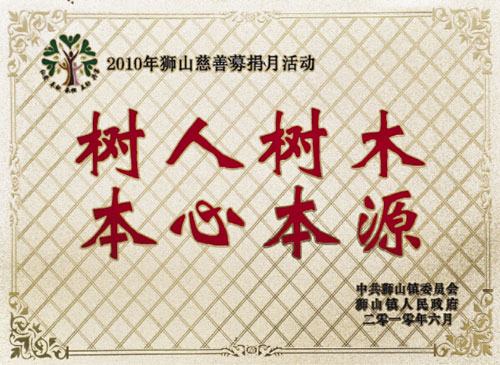 2010年狮山慈善募捐月活动
树人树木
本心本源
中共狮山镇委员会
狮山镇人民政府
二零一零年六月